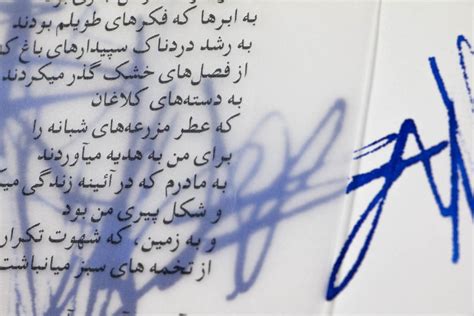 به ابرها که فکرهای طویلم بودند
به رشد دردناک سپیدارهای باغ که
از فصل‌های خشک گذر میکردند
به دسته‌های کلاغان
که عطر مزرعه‌های شبانه را
برای من به هدیه میآوردند
به مادرم که در آئینه زندگی میک
و شکل پیری من بود
و به زمین، که شهوت تکرار
از تخمه های سبز میانباشت